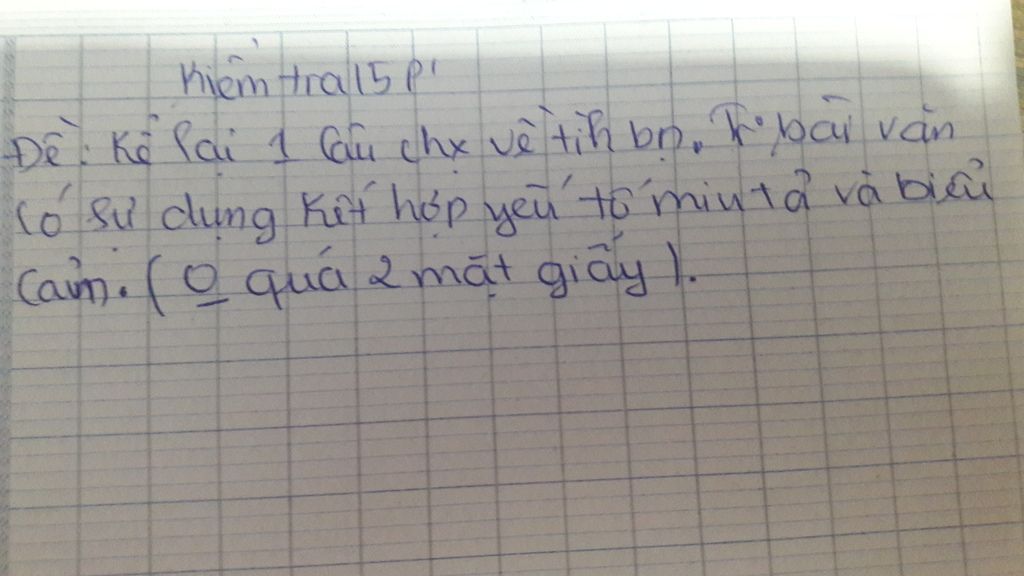 Kiểm tra 15 p'
Đề: Kể lại 1 câu chx về tìh bạn. Tr bài văn
có sử dụng kết hợp yếu tố miu tả và biểu
cảm. (O quá 2 mặt giấy).